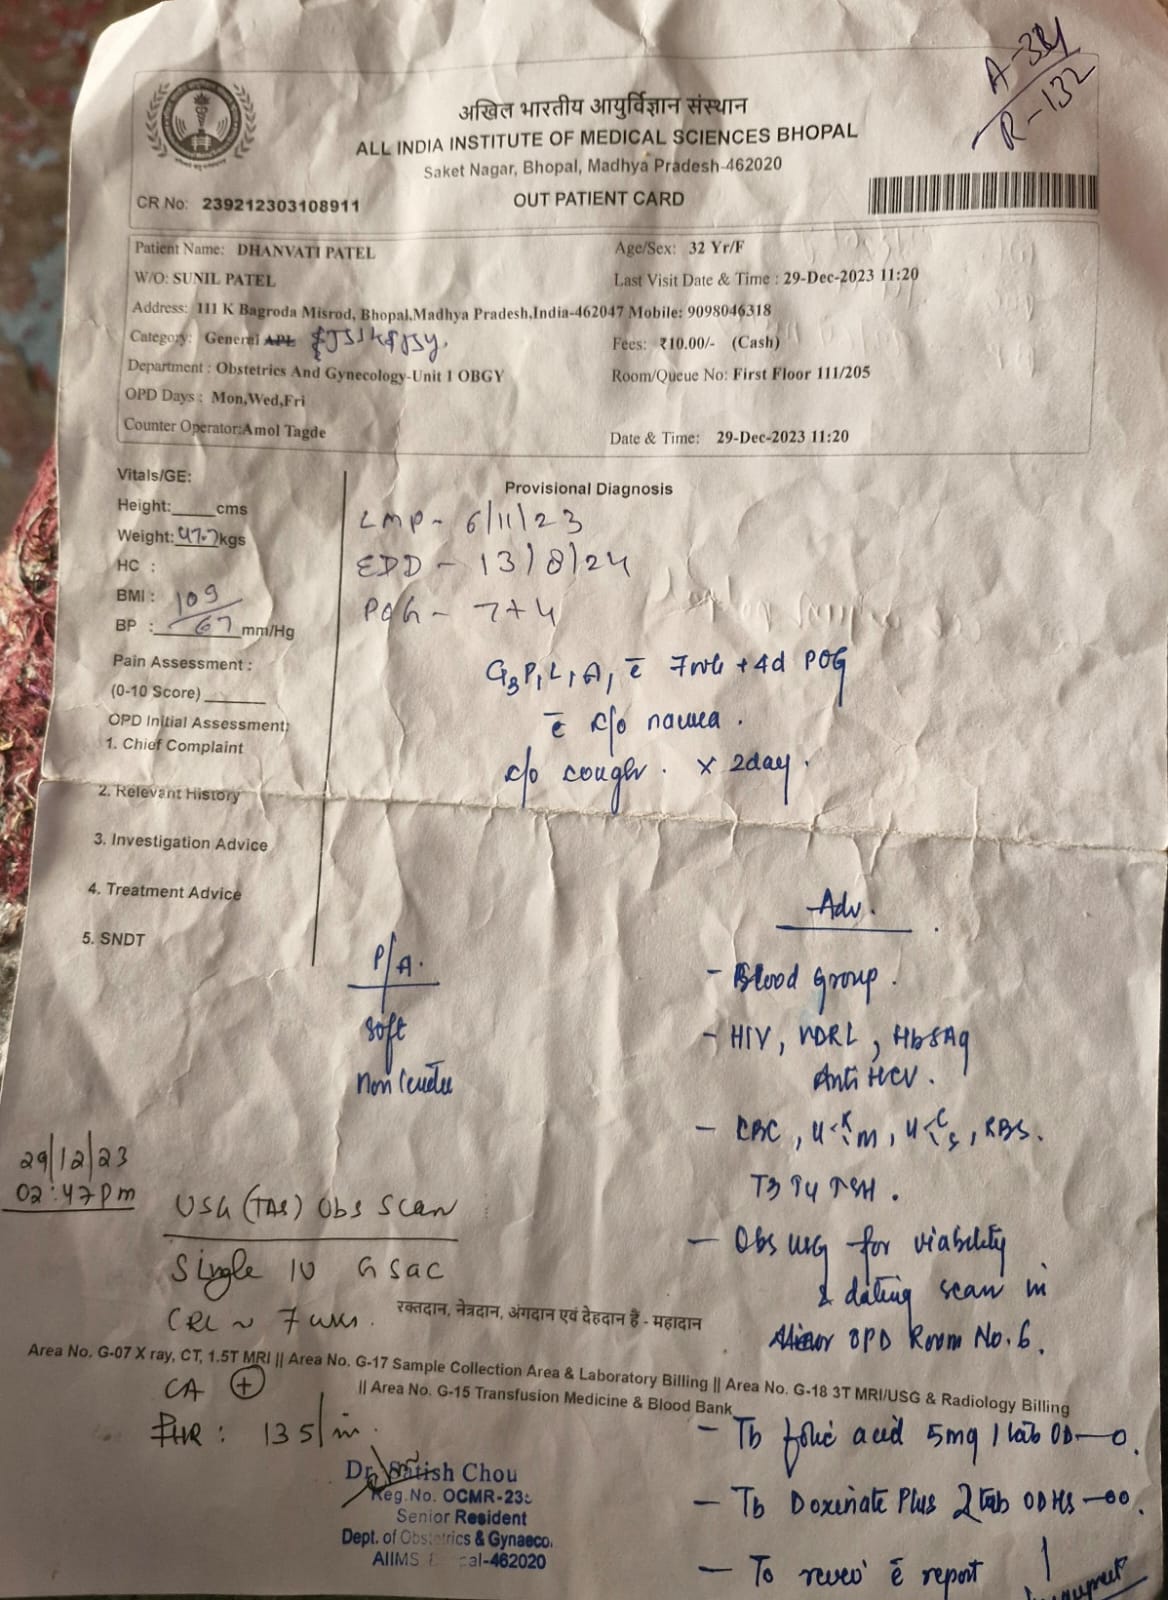 A-381
R-132
अखिल भारतीय आयुर्विज्ञान संस्थान
ALL INDIA INSTITUTE OF MEDICAL SCIENCES BHOPAL
Saket Nagar, Bhopal, Madhya Pradesh-462020
OUT PATIENT CARD
CR No: 239212303108911
Patient Name: DHANVATI PATEL
Age/Sex: 32 Yr/F
W/O: SUNIL PATEL
Last Visit Date & Time : 29-Dec-2023 11:20
Address: 111 K Bagroda Misrod, Bhopal,Madhya Pradesh,India-462047 Mobile: 9098046318
Category: General APL
Fees: ₹10.00/- (Cash)
Department : Obstetrics And Gynecology-Unit 1 OBGY
Room/Queue No: First Floor 111/205
OPD Days : Mon,Wed,Fri
Counter Operator:Amol Tagde
Date & Time: 29-Dec-2023 11:20
Vitals/GE:
Height: cms
Weight: 47.7 kgs
HC :
BMI :
BP : 109/67 mm/Hg
Pain Assessment :
(0-10 Score)
OPD Initial Assessment:
1. Chief Complaint
2. Relevant History
3. Investigation Advice
4. Treatment Advice
5. SNDT
Provisional Diagnosis
LMP - 6/11/23
EDD - 13/8/24
POG - 7+4
G3P1L1A1 c̄ 7wk + 4d POG
c̄ c/o nausea .
c/o cough . x 2day .
P/A.
soft
Non tender
Adv.
- Blood Group .
- HIV, VDRL, HbSAg
Anti HCV .
- CBC, U<R/M, U<C/S, RBS.
T3 T4 TSH .
- Obs USG for viability
& dating scan in
Minor OPD Room No. 6.
29/12/23
02:47pm
USG (TAS) Obs Scan
Single IU G sac
CRL ~ 7 wks.
रक्तदान, नेत्रदान, अंगदान एवं देहदान हैं - महादान
Area No. G-07 X ray, CT, 1.5T MRI || Area No. G-17 Sample Collection Area & Laboratory Billing || Area No. G-18 3T MRI/USG & Radiology Billing
|| Area No. G-15 Transfusion Medicine & Blood Bank
CA +
FHR : 135/m
- Tb folic acid 5mg 1 tab OD
- Tb Doxinate Plus 2 tab OD HS
- To review c̄ report
Dr. Satish Chou
Reg.No. OCMR-23
Senior Resident
Dept. of Obstetrics & Gynaeco.
AIIMS -462020